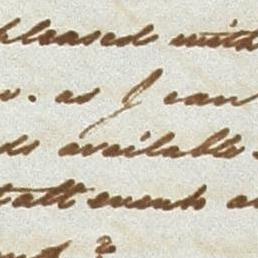 pleased with
as I can
available
at all events